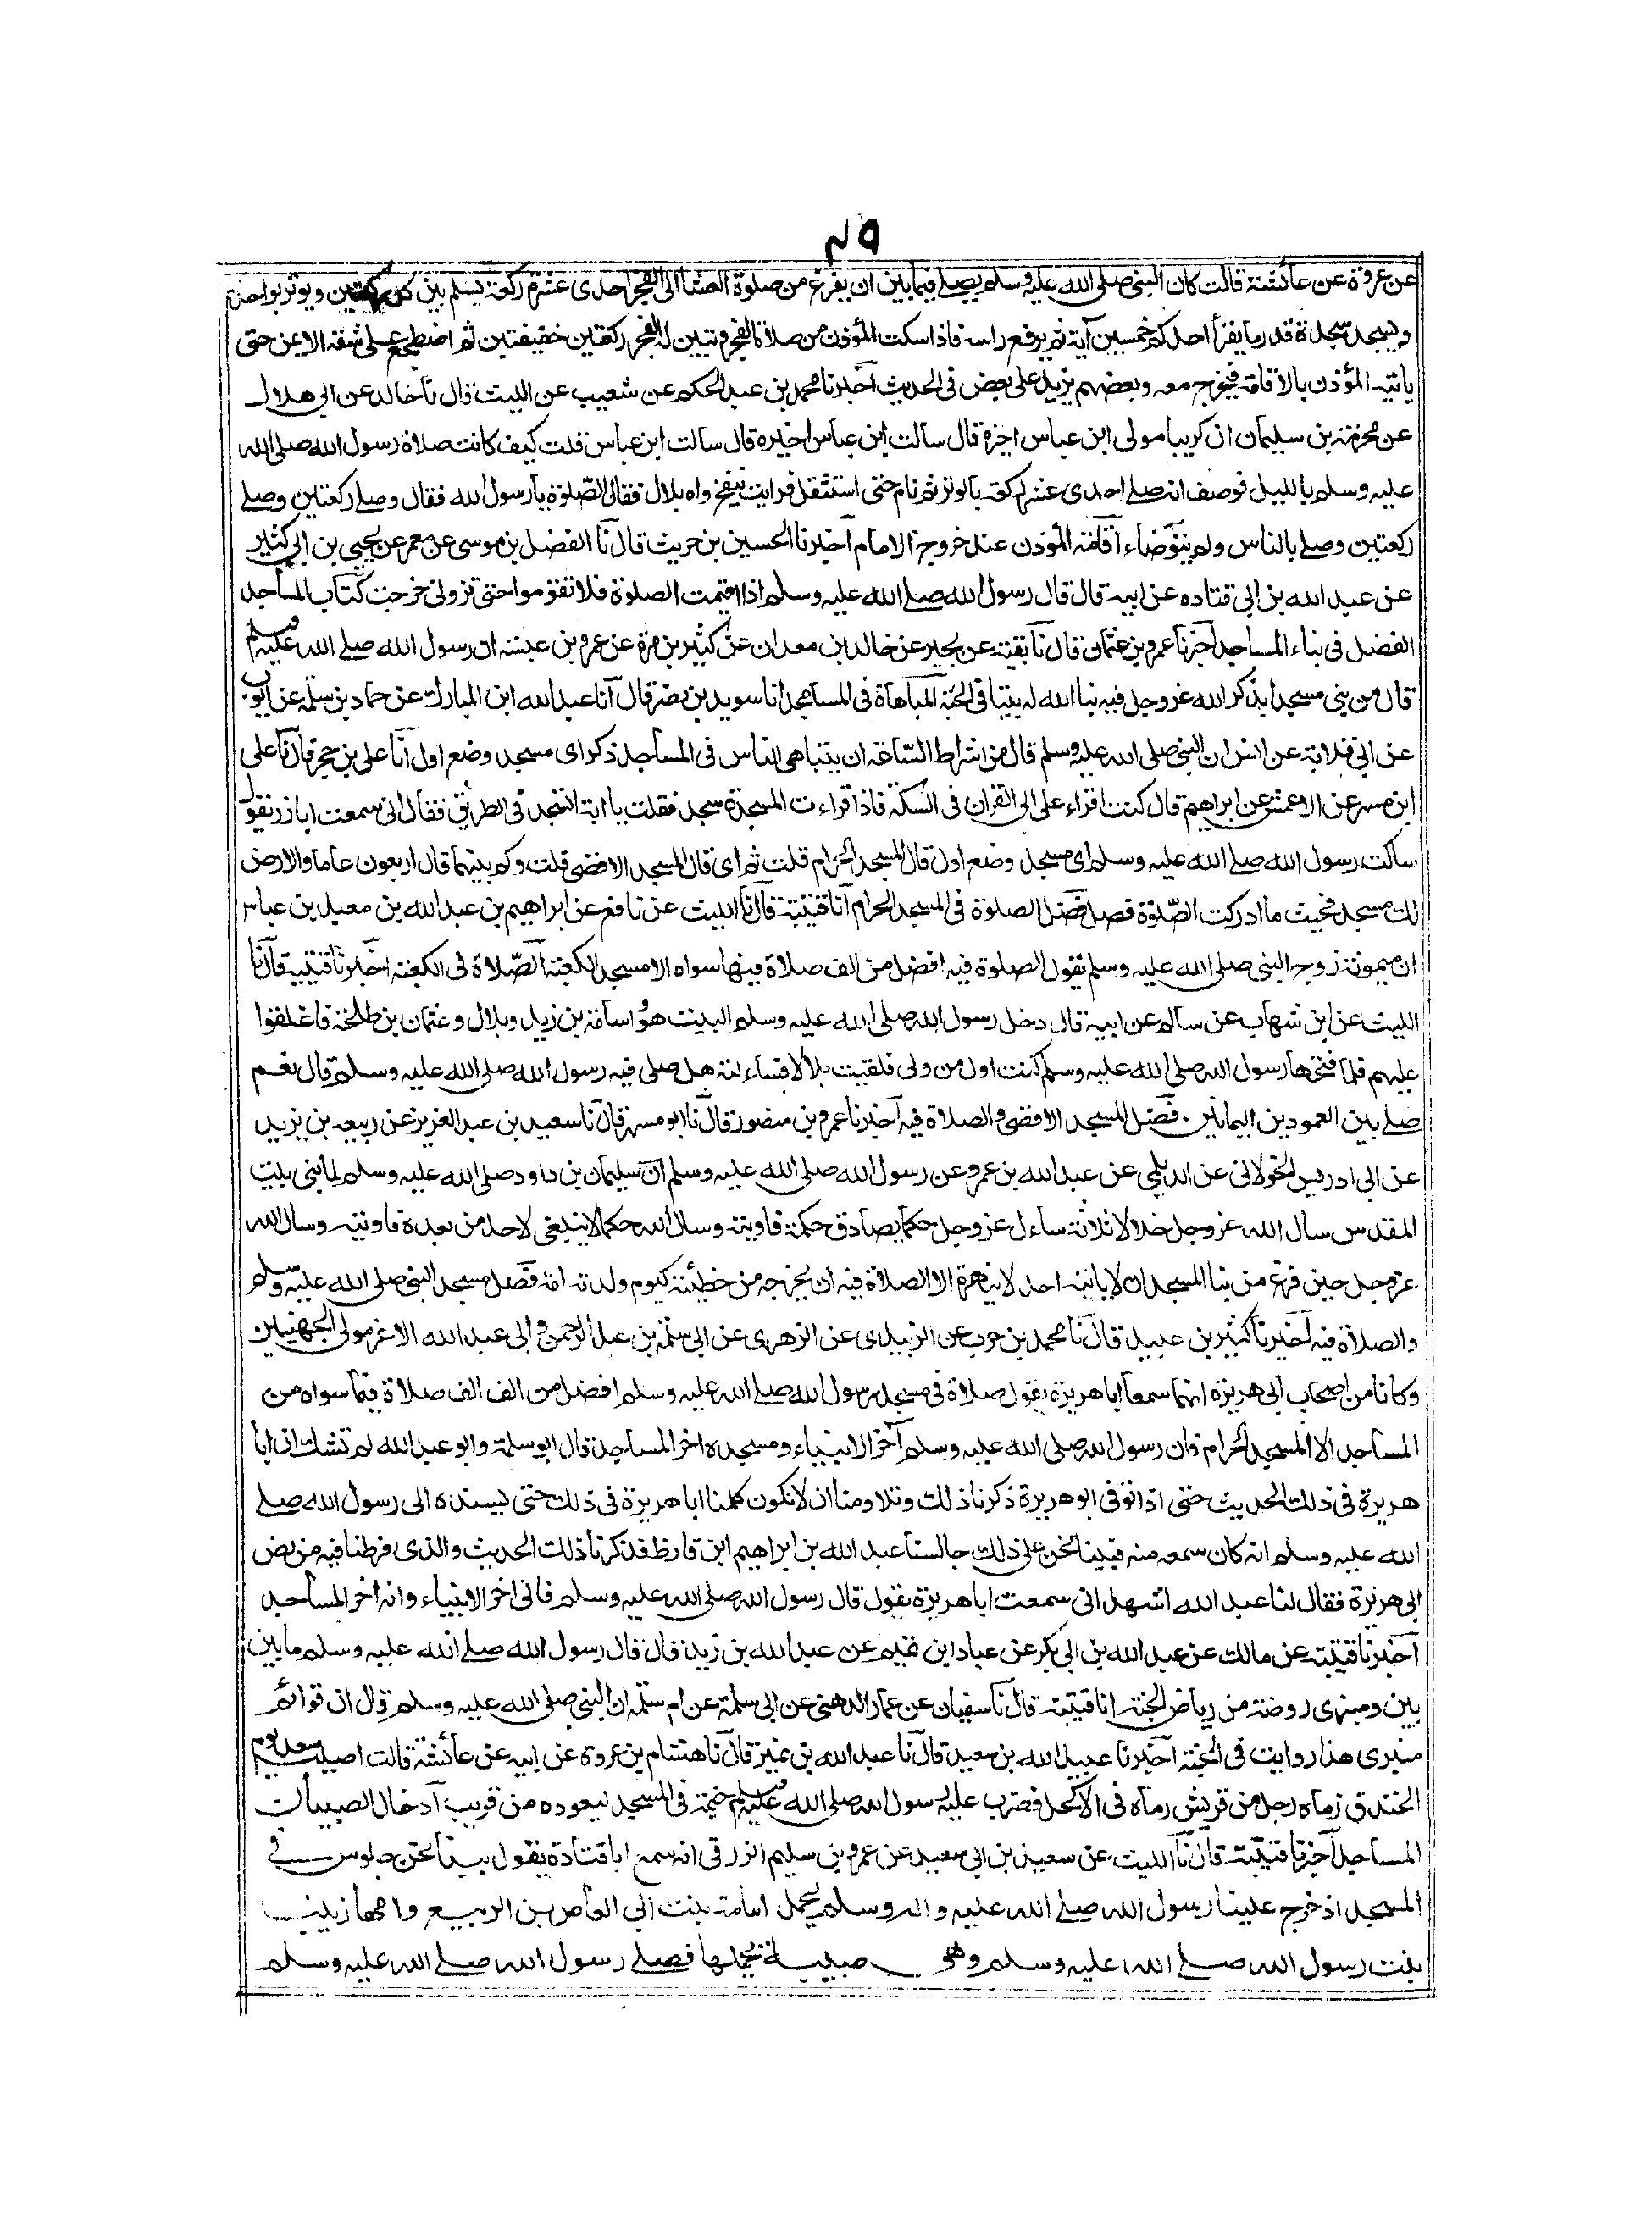 ٥٩
عن عروة عن عائشة قالت كان النبى صلى الله عليه وسلم يصلے فيما بين ان يفرغ من صلوة العشاا الى الفجر احدى عشرة ركعة يسلم بين كل ركعتين ويوتر بواحدة
ويسجد سجدة قدر ما يقرأ احدكم خمسين آية ثم يرفع راسه فاذا سكت المؤذن من صلاة الفجر وتبين له الفجر ركعتين خفيفتين ثم اضطجع على شقه الايمن حتى
ياتيه المؤذن بالاقامة فيخرج معه وبعضهم يزيد على بعض فى الحديث آخبرنا محمد بن عبد الحكم عن شعيب عن الليث قال نا خالد عن ابى هلال
عن مخرمة بن سليمان ان كريبا مولى ابن عباس اخبره قال سالت ابن عباس اخبره قال سالت ابن عباس قلت كيف كانت صلاة رسول الله صلى الله
عليه وسلم بالليل فوصف انه صلے احدى عشر ركعة بالوتر ثم نام حتى استثقل فرايت ينفخ واه بلال فقال الصّلوة يا رسول الله فقال وصلے ركعتين وصلے
ركعتين وصلے بالناس ولم يتوضاء آقامة المؤذن عند خروج الامام آخبرنا الحسين بن حريث قال نا الفضل بن موسى عن معمر عن يحيى بن ابى كثير
عن عبد الله بن ابى قتاده عن ابيه قال قال رسول الله صلے الله عليه وسلم اذا اقيمت الصلوة فلا تقوموا حتى ترونى خرجت كتاب المساجد
الفضل فى بناء المساجد آخبرنا عمرو بن عثمان قال نا بقية عن بحير عن خالد بن معدان عن كثير بن مرة عن عمرو بن عبسة ان رسول الله صلے الله عليه وسلم
قال من بنى مسجدا يذكر الله عز وجل فيه بنا الله له بيتا فى الجنة المباهاة فى المساجد انا سويد بن نصر قال آنا عبد الله ابن المبارك عن حماد بن سلمة عن ايوب
عن ابى قلابة عن انس ان النبى صلى الله عليه وسلم قال من اشراط السّاعة ان يتباهى الناس فى المساجد ذكر اى مسجد وضع اول آنا على بن حجر قال نا على
ابن مسهر عن الاعمش عن ابراهيم قال كنت اقراء على ابى القران فى السكة فاذا قراءت السجدة سجد فقلت يا ابة اتسجد فى الطريق فقال انى سمعت اباذر يقول
سالت رسول الله صلے الله عليه وسلم اى مسجد وضع اول قال المسجد الحرام قلت ثم اى قال المسجد الاقصى قلت وكم بينهما قال اربعون عاما والارض
لك مسجد فحيث ما ادركت الصّلوة فصل فضل الصلوة فى المسجد الحرام آنا قتيبة قال نا الليث عن نافع عن ابراهيم بن عبد الله بن معبد بن عباس
ان ميمونة زوج النبى صلى الله عليه وسلم تقول الصلوة فيه افضل من الف صلاة فيما سواه الا مسجد الكعبة الصّلاة فى الكعبة اخبرنا قتيبة قال نا
الليث عن ابن شهاب عن سالم عن ابيه قال دخل رسول الله صلى الله عليه وسلم البيت هو واسامة بن زيد وبلال وعثمان بن طلحة فاغلقوا
عليهم فلما فتحها رسول الله صلى الله عليه وسلم كنت اول من ولى فلقيت بلالا فساء لته هل صلى فيه رسول الله صلى الله عليه وسلم قال نعم
صلے بين العمودين اليمانين فضل المسجد الاقصى والصلاة فيه آخبرنا عمرو بن منصور قال نا ابو مسهر قال نا سعيد بن عبد العزيز عن ربيعه بن يزيد
عن ابى ادريس الخولانى عن الديلمى عن عبد الله بن عمرو عن رسول الله صلى الله عليه وسلم ان سليمان بن داود صلى الله عليه وسلم لما بنى بيت
المقدس سال الله عز وجل خلالا ثلاثة ساءل عز وجل حكما يصادق حكمة فاوتيه وسال الله حكما لا ينبغى لاحد من بعدة فاوتيه وسال الله
عز وجل حين فرغ من بنا المسجد ان لا ياتيه احد لا ينهزه الا الصلاة فيه ان يخرجه من خطئته كيوم ولدته امه فضل مسجد النبى صلى الله عليه وسلم
والصلاة فيه آخبرنا كثير بن عبيد قال نا محمد بن حرب عن الزبيدى عن الزهرى عن ابى سلمة بن عبد الرحمن وابى عبد الله الاغر مولى الجهنيين
وكانا من اصحاب ابى هريرة انهما سمعا ابا هريرة يقول صلاة فى مسجد رسول الله صلے الله عليه وسلم افضل من الف الف صلاة فيما سواه من
المساجد الا المسجد الحرام فان رسول الله صلى الله عليه وسلم آخر الانبياء ومسجده اخر المساجد قال ابو سلمة وابو عبد الله لم نشك ان ابا
هريرة فى ذلك الحديث حتى اذا توفى ابو هريرة ذكرنا ذلك وتلاومنا ان لا نكون كلمنا ابا هريرة فى ذلك حتى يسنده الى رسول الله صلے
الله عليه وسلم انه كان سمعه منه فبينا نحن على ذلك جالسنا عبد الله بن ابراهيم ابن قارظ فذكرنا ذلك الحديث والذى فرطنا فيه من نص
ابى هريرة فقال لنا عبد الله اشهد انى سمعت ابا هريرة يقول قال رسول الله صلى الله عليه وسلم فانى اخر الانبياء وانه اخر المساجد
آخبرنا قتيبة عن مالك عن عبد الله بن ابى بكر عن عباد ابن تميم عن عبد الله بن زيد قال قال رسول الله صلے الله عليه وسلم ما بين
بين ومنبرى روضة من رياض الجنة انا قتيبة قال نا سفيان عن عمار الدهنى عن ابى سلمة عن ام سلمه ان النبى صلى الله عليه وسلم قال ان قوائم
منبرى هذا روابت فى الجنة آخبرنا عبيد الله بن سعيد قال نا عبد الله بن نمير قال نا هشام بن عروة عن ابيه عن عائشة قالت اصيب سعد يوم
الخندق رماه رجل من قريش رماه فى الاكحل فضرب عليه رسول الله صلى الله عليه وسلم خيمة فى المسجد ليعوده من قريب آدخال الصبيان
المساجد آخبرنا قتيبة قال نا الليث عن سعيد بن ابى سعيد عن عمرو بن سليم الزرقى انه سمع ابا قتادة يقول بينا نحن جلوس فے
المسجد اذ خرج علينا رسول الله صلے الله عليه واله وسلم يحمل امامة بنت ابى العاص بن الربيع وامها زينب
بنت رسول الله صلے الله عليه وسلم وهى صبية يحملها فصلے رسول الله صلے الله عليه وسلم